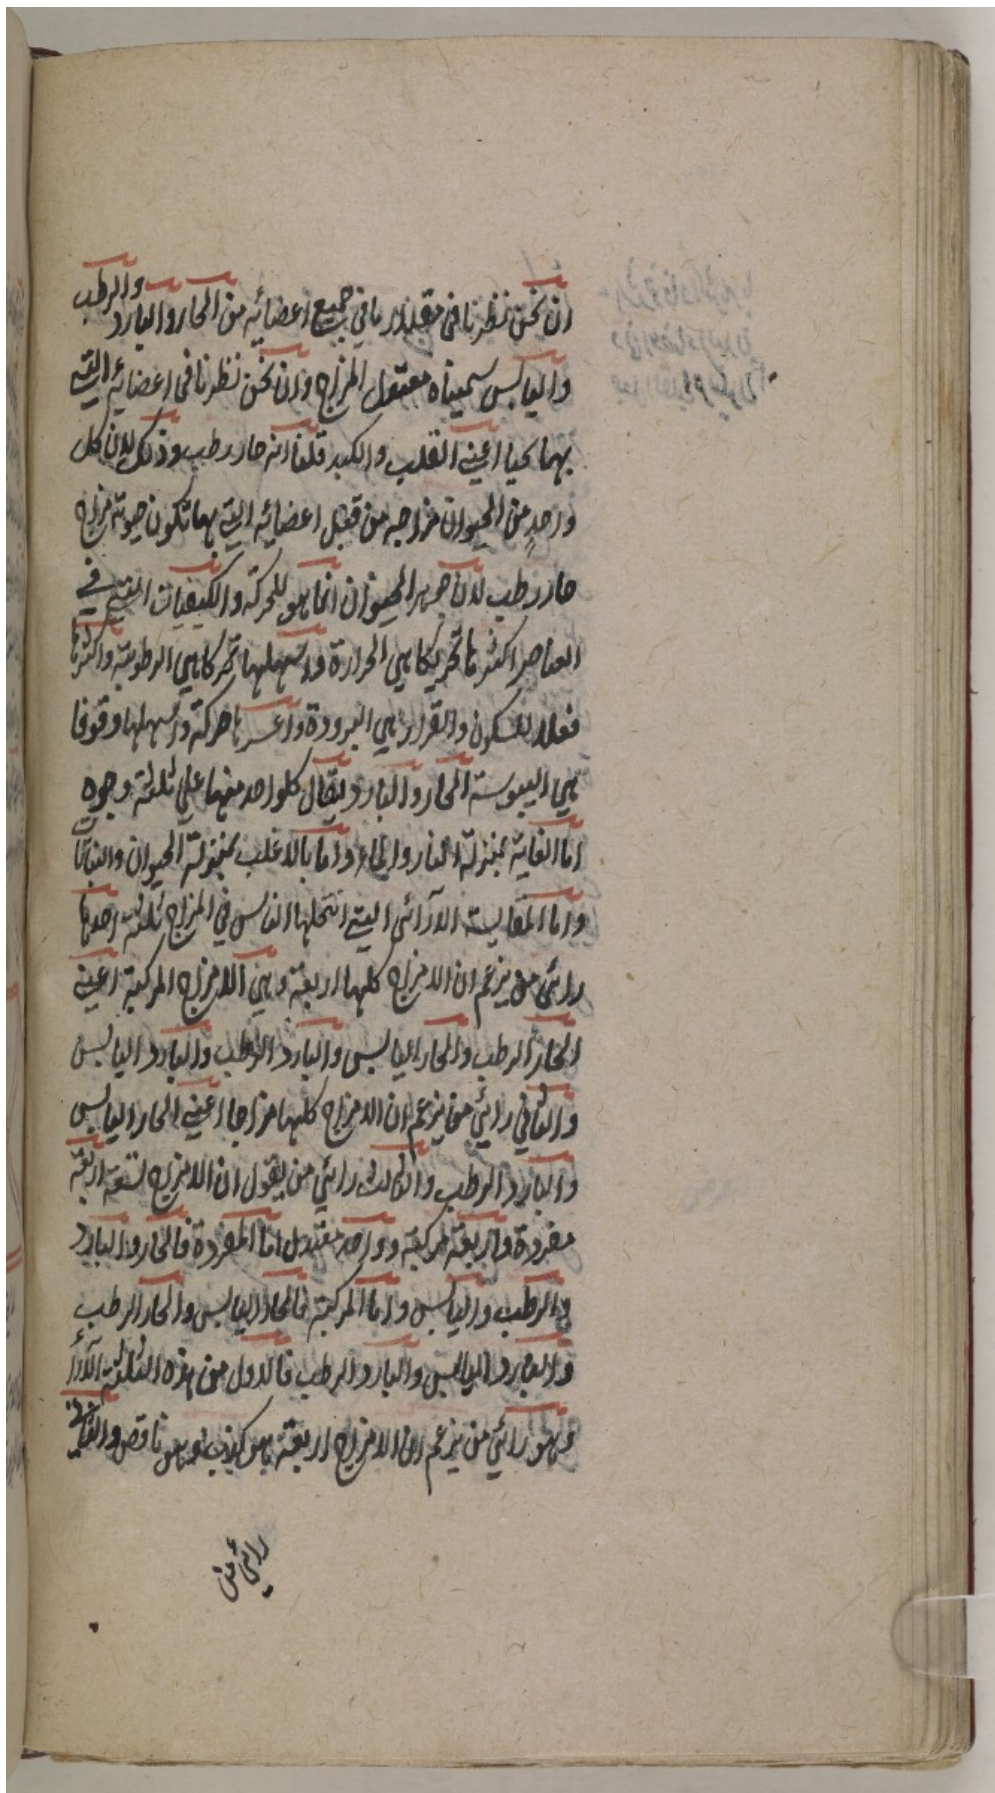 ان نحن نظرنا في مقدار ما في جميع اعضائه من الحار والبارد والرطب
واليابس سميناه معتدل المزاج وان نحن نظرنا في اعضائه التي
بها يحيا اعني القلب والكبد قلنا انه حار رطب وذلك لان كل
واحد من الحيوان مزاجه من قبل اعضائه التي بها تكون حيوته مزاج
حار رطب لان جوهر الحيوان انما هو للحركة والكيفيات التي في
العناصر اكثرها تحريكا هي الحرارة واسهلها تحركا هي الرطوبة واكثرها
فعلا للسكون والقرار هي البرودة واعسرها حركة واسهلها وقوفا
هي اليبوسة الحار والبارد يقال كلواحد منها علي ثلثة وجوه
اما الغاية بمنزلة النار والماء واما بالاغلب بمنزلة الحيوان والنبات
واما المقايسة الآرائي التي انتحلها الناس في المزاج ثلثة احدها
رائي من يزعم ان الامزاج كلها اربعة وهي الامزاج المركبة اعني
الحار الرطب والحار اليابس والبارد الرطب والبارد اليابس
والثاني رائي من يزعم ان الامزاج كلها مزاجا اعني الحار اليابس
والبارد الرطب والثالث رائي من يقول ان الامزاج تسعة اربعة
مفردة واربعة مركبة وواحد معتدل اما المفردة فالحار والبارد
والرطب واليابس واما المركبة فالحار اليابس والحار الرطب
والبارد اليابس والبارد الرطب فالاول من هذه الثلثة الآرأ
وهو رائي من يزعم ان الامزاج اربعة هو كذب وهو ناقص والثاني
رائي من